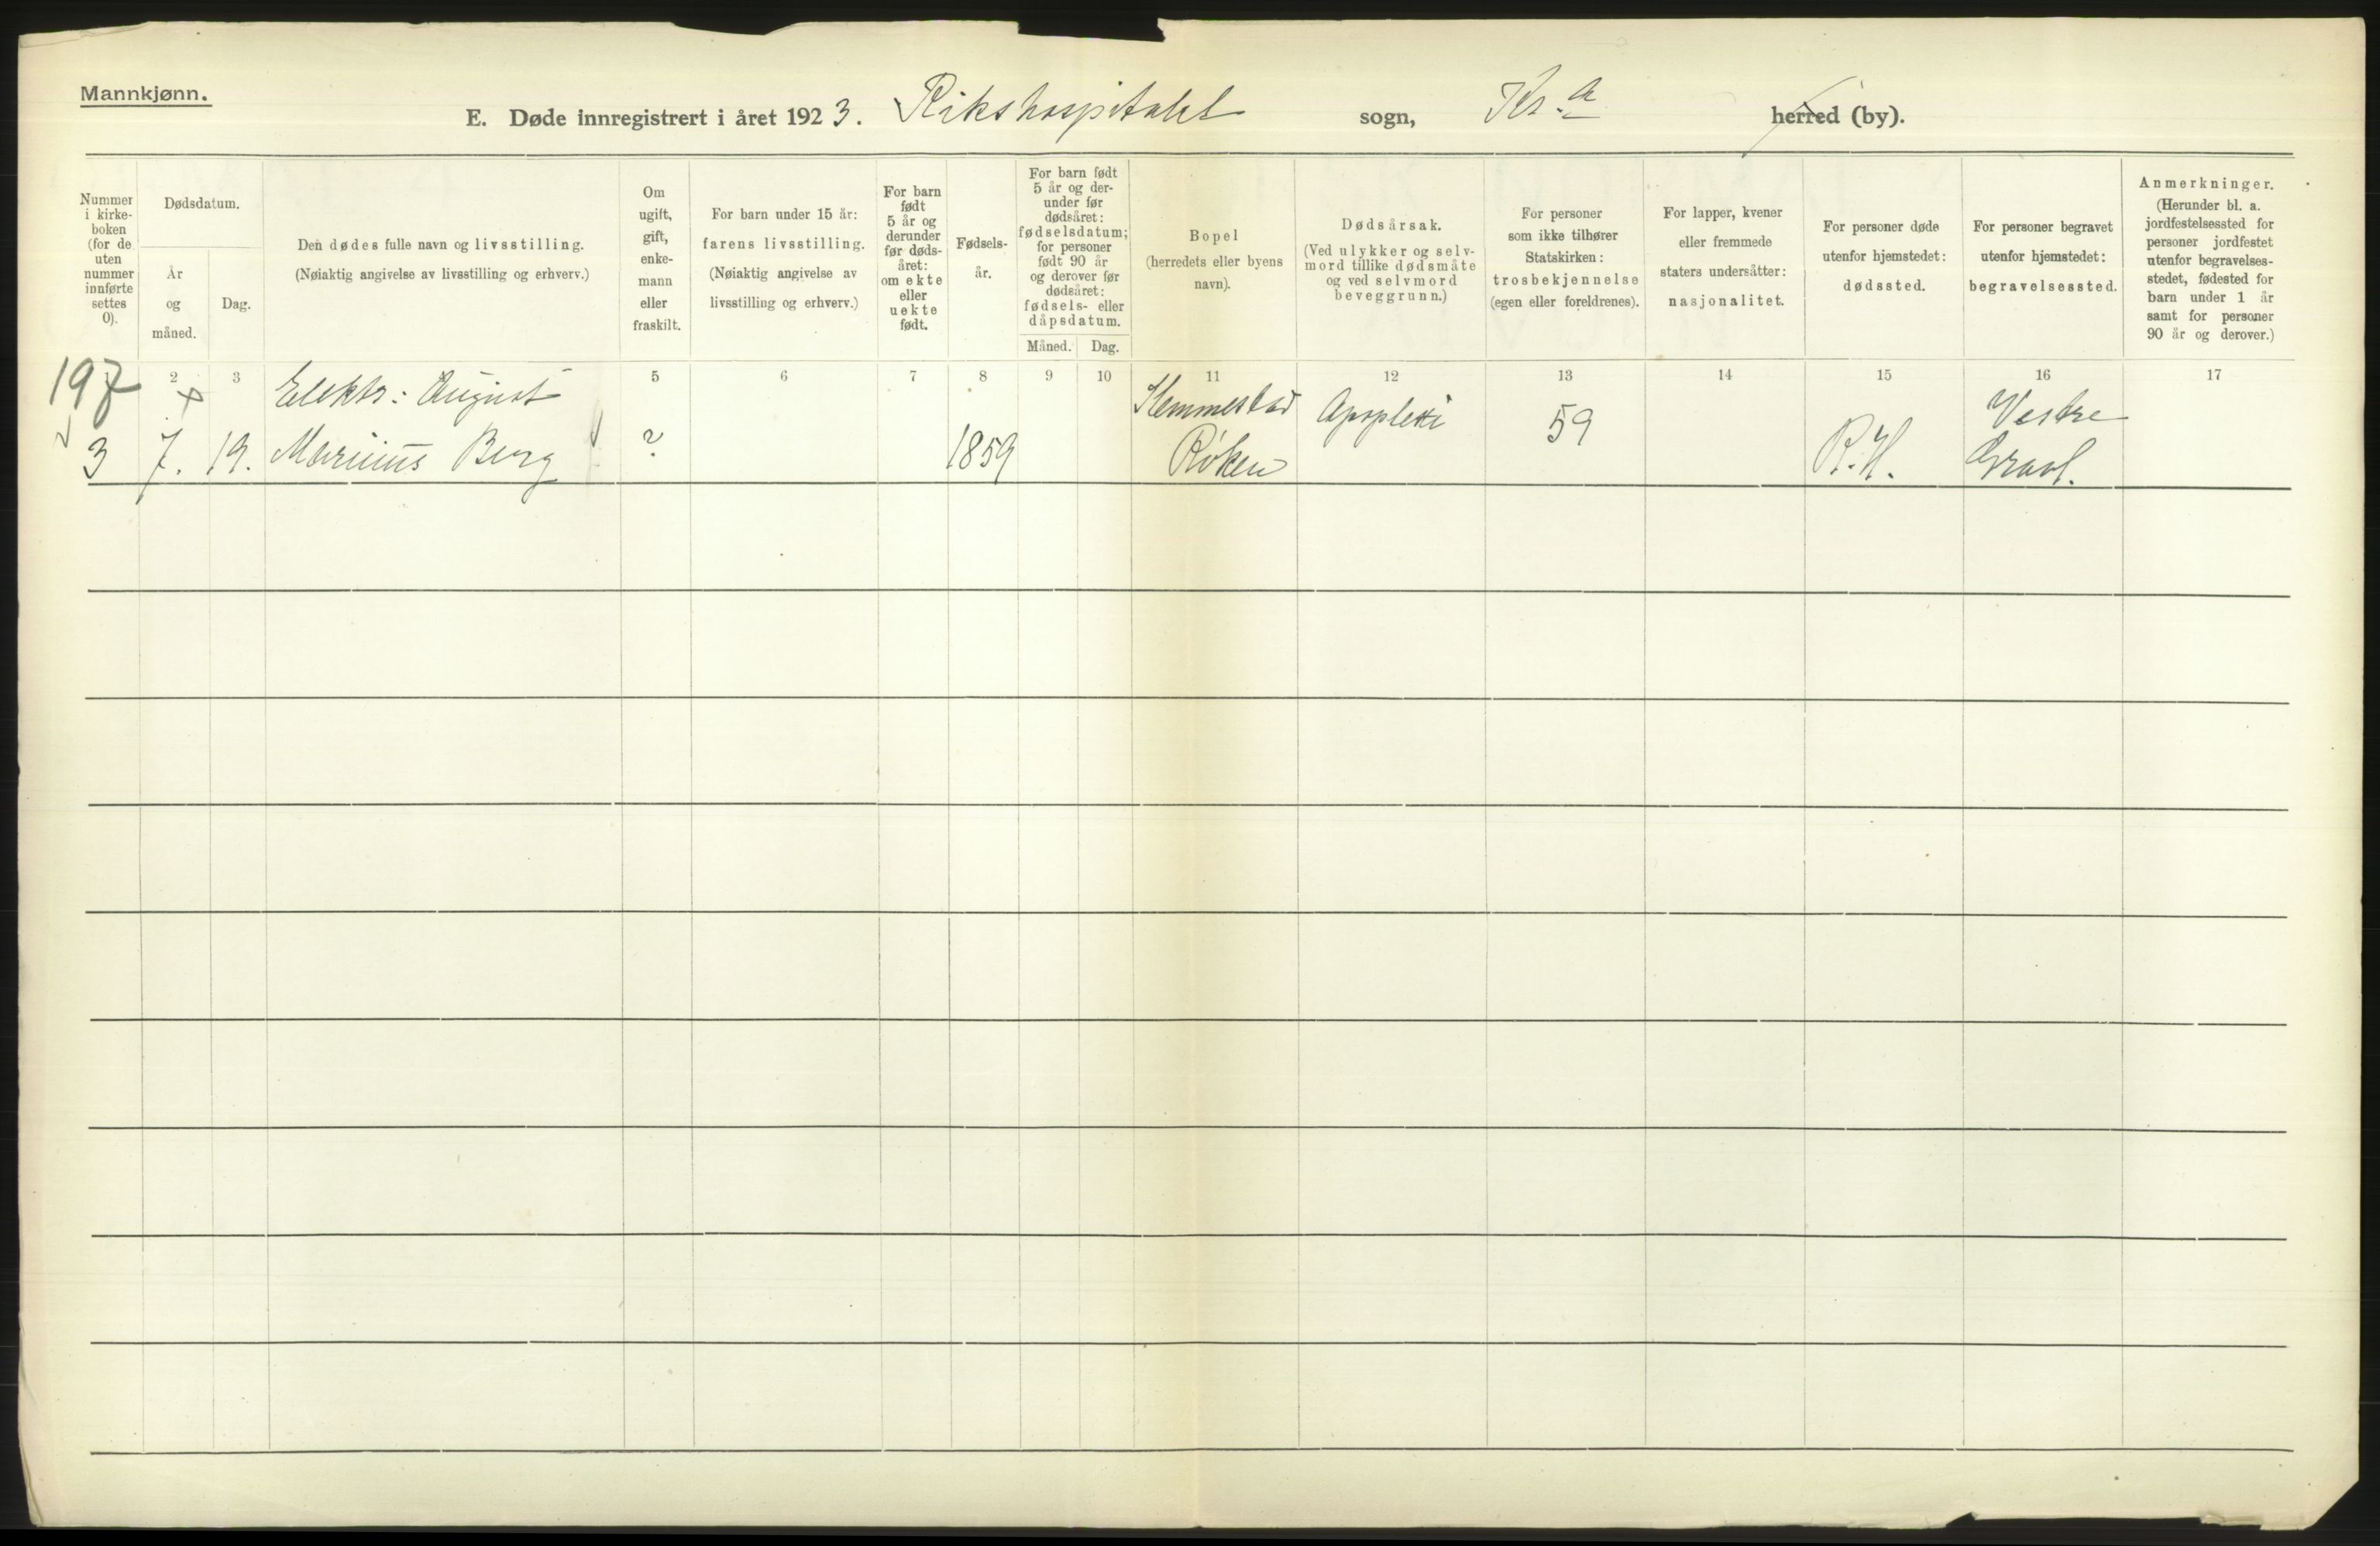 Mannkjønn.
E. Døde innregistrert i året 1923. Rikshospitalet sogn, Kr.a herred (by).
Nummer
i kirke-
boken
(for de
uten
nummer
innførte
settes
0).
Dødsdatum.
År
og
måned.
Dag.
Den dødes fulle navn og livsstilling.
(Nøiaktig angivelse av livsstilling og erhverv.)
Om
ugift,
gift,
enke-
mann
eller
fraskilt.
For barn under 15 år:
farens livsstilling.
(Nøiaktig angivelse av
livsstilling og erhverv.)
For barn
født
5 år og
derunder
før døds-
året:
om ekte
eller
uekte
født.
Fødsels-
år.
For barn født
5 år og der-
under før
dødsåret:
fødselsdatum;
for personer
født 90 år
og derover før
dødsåret:
fødsels- eller
dåpsdatum.
Måned. Dag.
Bopel
(herredets eller byens
navn).
Dødsårsak.
(Ved ulykker og selv-
mord tillike dødsmåte
og ved selvmord
beveggrunn.)
For personer
som ikke tilhører
Statskirken:
trosbekjennelse
(egen eller foreldrenes).
For lapper, kvener
eller fremmede
staters undersåtter:
nasjonalitet.
For personer døde
utenfor hjemstedet:
dødssted.
For personer begravet
utenfor hjemstedet:
begravelsessted.
Anmerkninger.
(Herunder bl. a.
jordfestelsessted for
personer jordfestet
utenfor begravelses-
stedet, fødested for
barn under 1 år
samt for personer
90 år og derover.)
2 3 5 6 7 8 9 10 11 12 13 14 15 16 17
197 Elektr: August Slemmestad Apoplexi 59 Vestre
3 7. 19. Marinius Berg ? 1859 Røken R.H. Gravl.